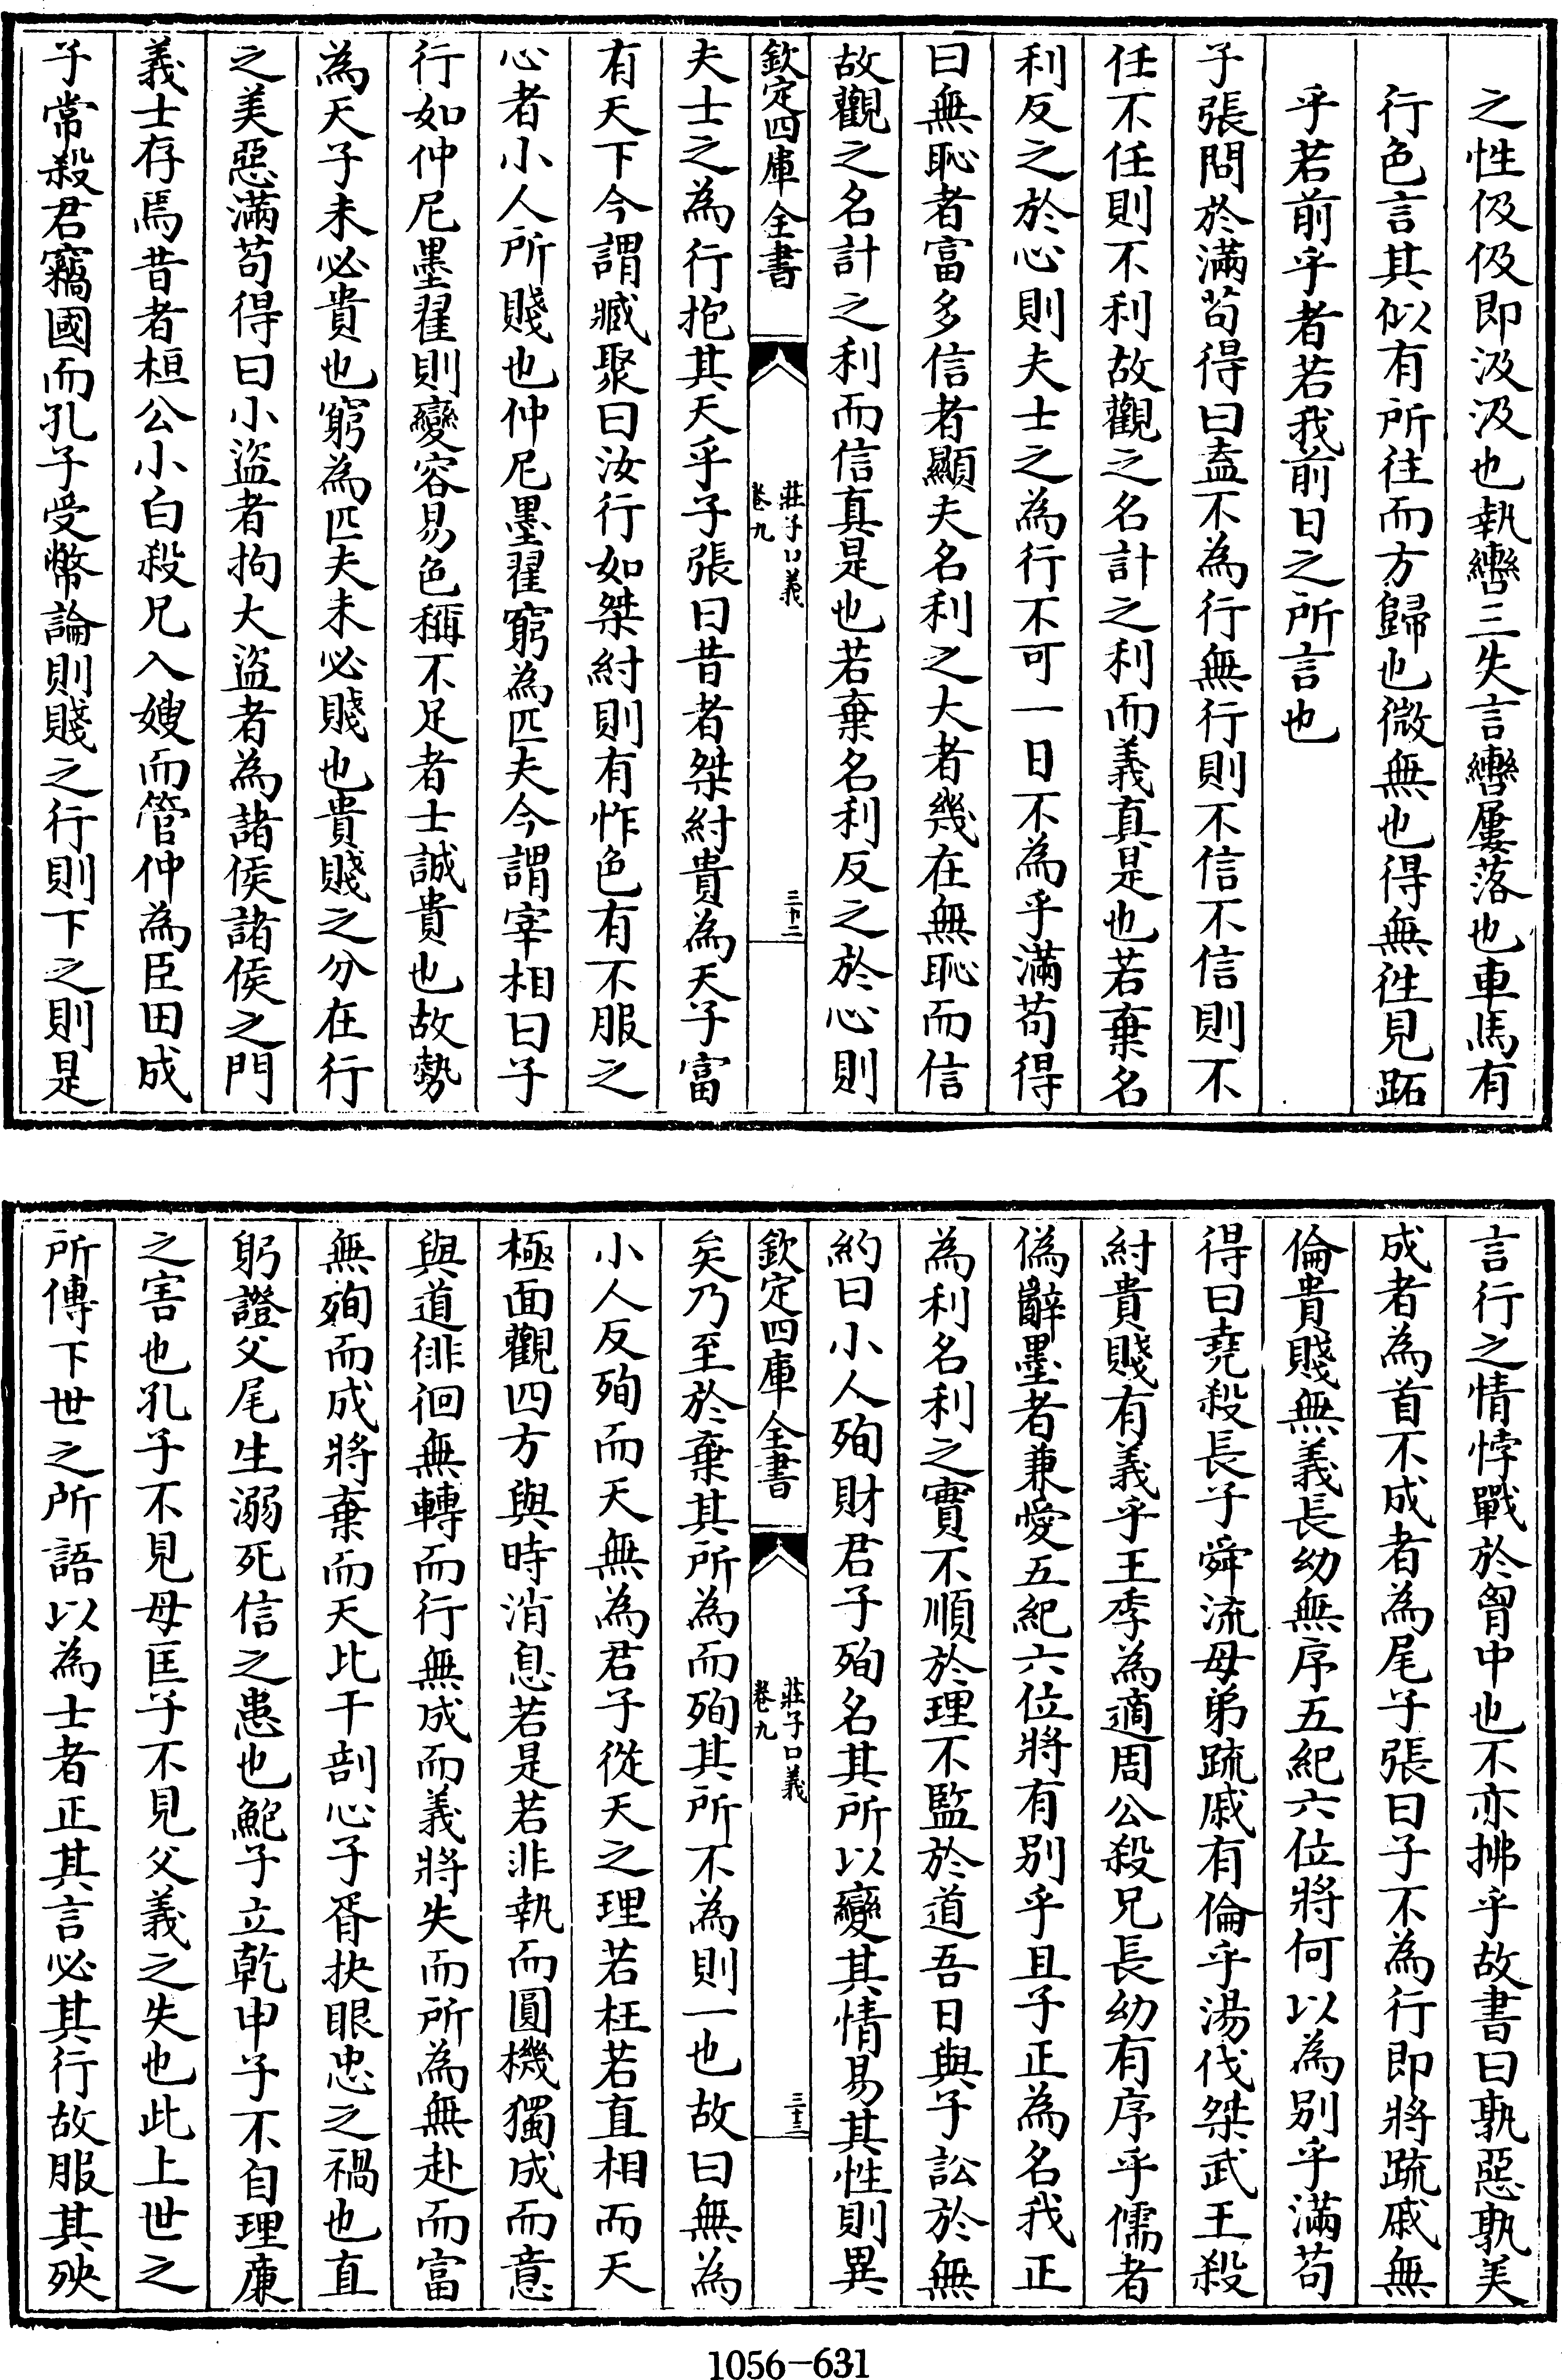 之性伋伋即汲汲也執轡三失言轡屢落也車馬有
行色言其似有所往而方歸也微無也得無徃見跖
乎若前乎者若我前日之所言也
子張問於滿苟得曰盍不為行無行則不信不信則不
任不任則不利故觀之名計之利而義真是也若棄名
利反之於心則夫士之為行不可一日不為乎滿苟得
曰無恥者富多信者顯夫名利之大者幾在無恥而信
故觀之名計之利而信真是也若棄名利反之於心則
欽定四庫全書
莊子口義
卷九
三十二
夫士之為行抱其天乎子張曰昔者桀紂貴為天子富
有天下今謂臧聚曰汝行如桀紂則有怍色有不服之
心者小人所賤也仲尼墨翟窮為匹夫今謂宰相曰子
行如仲尼墨翟則變容易色稱不足者士誠貴也故勢
為天子未必貴也窮為匹夫未必賤也貴賤之分在行
之美惡滿苟得曰小盜者拘大盜者為諸侯諸侯之門
義士存焉昔者桓公小白殺兄入嫂而管仲為臣田成
子常殺君竊國而孔子受幣論則賤之行則下之則是
言行之情悖戰於胷中也不亦拂乎故書曰孰惡孰美
成者為首不成者為尾子張曰子不為行即將疏戚無
倫貴賤無義長幼無序五紀六位將何以為別乎滿苟
得曰堯殺長子舜流母弟疏戚有倫乎湯伐桀武王殺
紂貴賤有義乎王季為適周公殺兄長幼有序乎儒者
偽辭墨者兼愛五紀六位將有別乎且子正為名我正
為利名利之實不順於理不監於道吾日與子訟於無
約曰小人殉財君子殉名其所以變其情易其性則異
欽定四庫全書
莊子口義
卷九
三十三
矣乃至於棄其所為而殉其所不為則一也故曰無為
小人反殉而天無為君子從天之理若枉若直相而天
極面觀四方與時消息若是若非執而圓機獨成而意
與道徘徊無轉而行無成而義將失而所為無赴而富
無殉而成將棄而天比干剖心子胥抉眼忠之禍也直
躬證父尾生溺死信之患也鮑子立乾申子不自理廉
之害也孔子不見母匡子不見父義之失也此上世之
所傳下世之所語以為士者正其言必其行故服其殃
1056-631